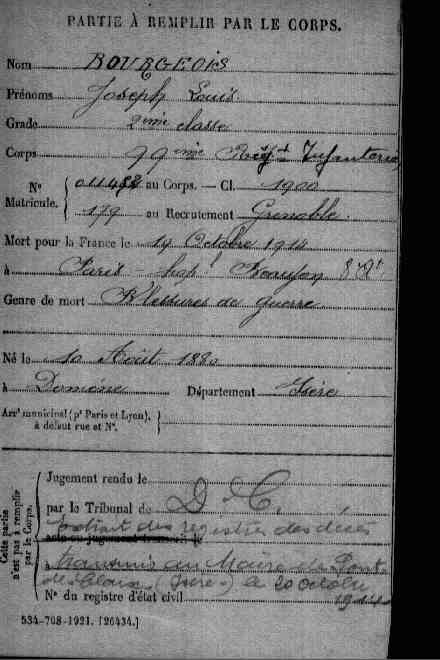 PARTIE À REMPLIR PAR LE CORPS.
Nom BOURGEOIS
Prénoms Joseph Louis
Grade 2eme classe
Corps 99eme Régt Infanterie
N° Matricule. { 011482 au Corps. — Cl. 1900
179 au Recrutement Grenoble.
Mort pour la France le 14 Octobre 1914
à Paris hop! Beaujon 8e Art
Genre de mort Blessures de guerre
Né le 10 Août 1880
à Domène Département Isère
Arrt municipal (pr Paris et Lyon), à défaut rue et N°. }
Cette partie n'est pas à remplir par le Corps.
Jugement rendu le
par le Tribunal de D. C.
extrait des registres des décès
acte ou jugement transcrit le
à transmis au Maire de Pont
de Claix (Isère) le 20 octobre
N° du registre d'état civil 1914
534-708-1921. [26434.]